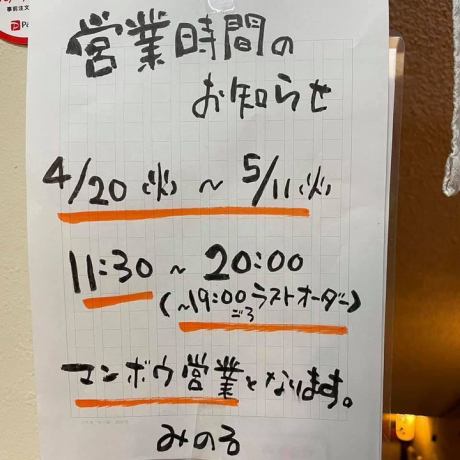 事前注文
営業時間の
お知らせ
4/20(火)～5/11(火)
11:30～20:00
(～19:00ラストオーダー)
ごろ
マンボウ営業となります。
みのる